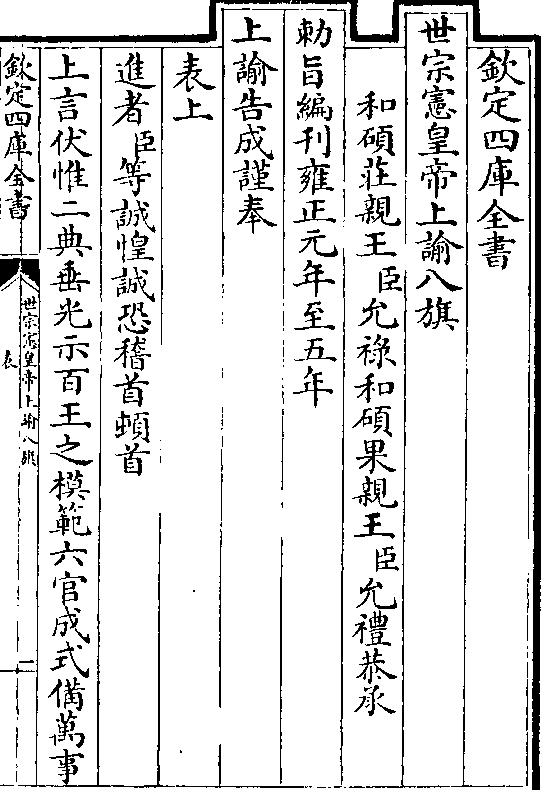 欽定四庫全書
世宗憲皇帝上諭八旗
和碩莊親王臣允祿和碩果親王臣允禮恭承
勅旨編刊雍正元年至五年
上諭告成謹奉
表上
進者臣等誠惶誠恐稽首頓首
上言伏惟二典垂光示百王之模範六官成式備萬事
欽定四庫全書
世宗憲皇帝上諭八旗
表
一